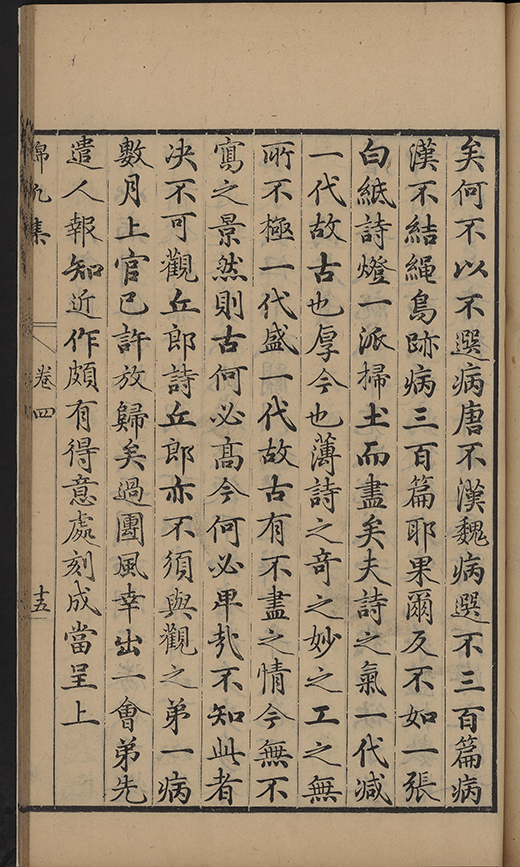 矣何不以不選病唐不漢魏病選不三百篇病
漢不結繩鳥跡病三百篇耶果爾反不如一張
白紙詩燈一派掃土而盡矣夫詩之氣一代減
一代故古也厚今也薄詩之奇之妙之工之無
所不極一代盛一代故古有不盡之情今無不
寫之景然則古何必高今何必卑㢤不知此者
决不可觀丘郎詩丘郎亦不須與觀之弟一病
數月上官已許放歸矣過團風幸出一會弟先
遣人報知近作頗有得意處刻成當呈上
錦凡集
卷四
十五